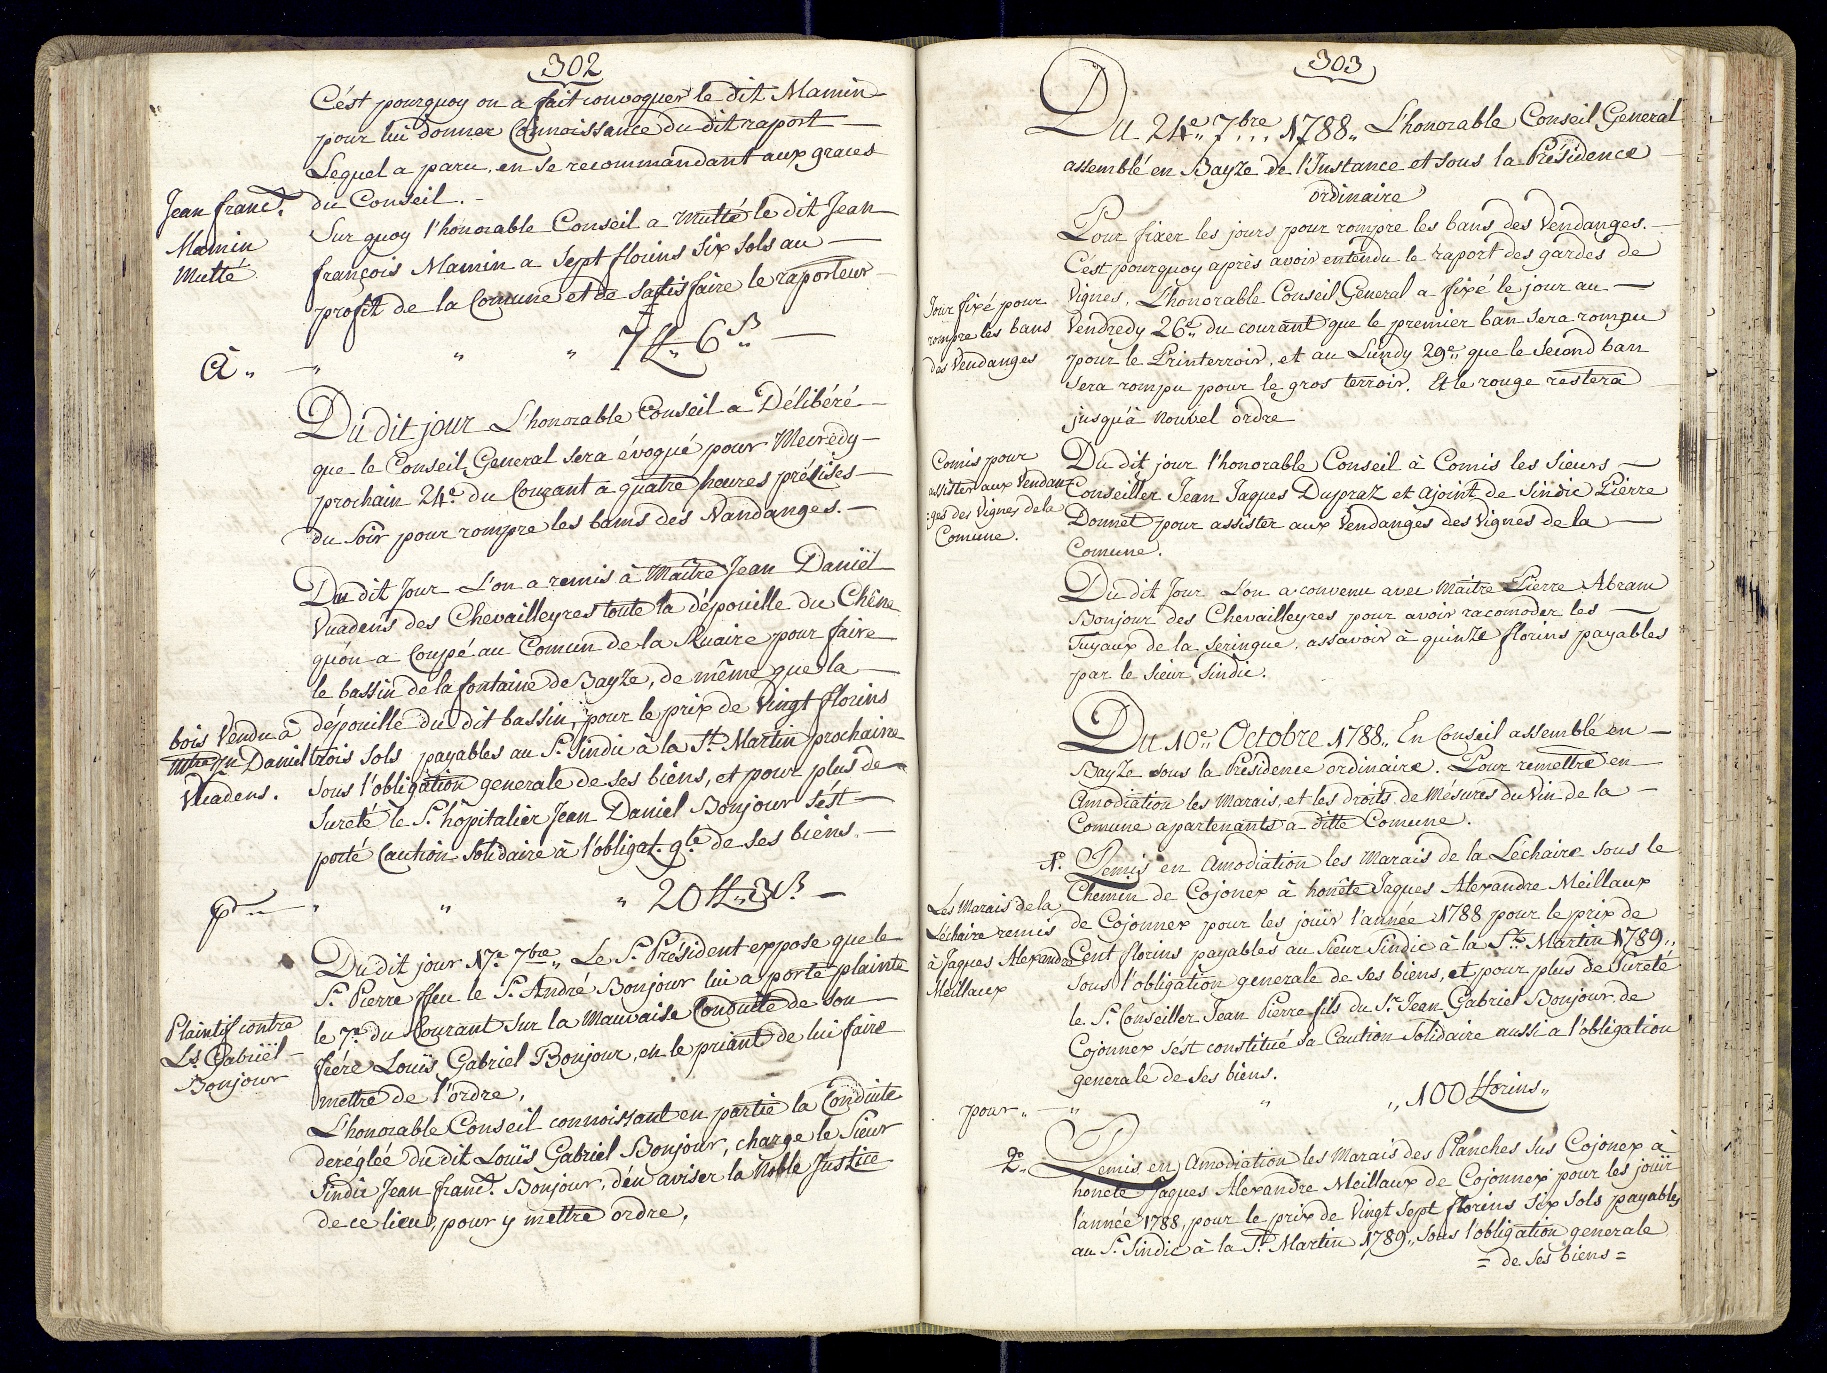 302
C'est pourquoy on a fait convoquer le dit Mamin
pour lui donner Connoissance du dit raport
Lequel a paru, en se recommandant aux graces
du Conseil.
Jean franc.
Mamin
Mutté
Sur quoy l'honorable Conseil a Mutté le dit Jean
françois Mamin a Sept florins Six Sols au
profit de la Comune et de Satisfaire le raporteur
à „ „ „ „ 7 ff „ 6 ß „
Du dit jour L'honorable Conseil a Délibéré
que le Conseil General sera évoqué pour Mecredy
prochain 24e du Courant à quatre heures précises
du Soir pour rompre les bams des Vandanges.
Du dit Jour L'on a remis à Maitre Jean Daniël
Vuadens des Chevailleyres toute la dépouille du Chêne
qu'on a Coupé au Comun de la Ruaire pour faire
le bassin de la fontaine de Bayze, de même que la
dépouille du dit bassin, pour le prix de Vingt florins
trois Sols payables au Sr. Sindic à la St. Martin prochaine
Sous l'obligation generale de ses biens, et pour plus de
Sureté le Sr. hôpitalier Jean Daniel Bonjour s'ést
porté Caution Solidaire à l'obligat. gle de ses biens.
bois Vendu à
mtre Jn Daniel
Vuadens.
pr „ „ „ „ 20 ff „ 3 ß.
Du dit jour 17e 7bre „ Le Sr. Président expose que le
Sr. Pierre ffeu le Sr. André Bonjour lui a porté plainte
le 7e. du Courant Sur la Mauvaise Conduite de Son
frére Louïs Gabriel Bonjour, en le priant de lui faire
mettre de l'ordre,
Plaintif contre
Ls. Gabriël
Bonjour
L'honorable Conseil connoissant en partie la Conduite
deréglée du dit Louïs Gabriel Bonjour, charge le Sieur
Sindic Jean franc. Bonjour, d'en aviser la Noble Justice
de ce lieu, pour y mettre ordre.
303
Du 24e „ 7bre . . . 1788 „ L'honorable Conseil General
assemblé en Bayze de l'Instance et sous la Présidence
ordinaire
Pour fixer les jours pour rompre les bans des Vendanges.
C'est pourquoy après avoir entendu le raport des gardes de
Vignes, L'honorable Conseil General a fixé le jour au
Vendredy 26e „ du courant que le premier ban sera rompu
pour le Printerroir, et au Lundy 29e „ que le Second ban
Sera rompu pour le gros terroir. Et le rouge restera
jusqu'à Nouvel ordre
Jour fixé pour
rompre les bans
des Vendanges
Du dit jour l'honorable Conseil à Comis les Sieurs
Conseiller Jean Jaques Dupraz et ajoint de Sindic Pierre
Donnet pour assister aux Vendanges des Vignes de la
Comune.
Comis pour
assister aux Vendan
:ges des Vignes de la
Comune.
Du dit Jour L'on a convenu avec Maitre Pierre Abram
Bonjour des Chevailleyres pour avoir racomoder les
Tuyaux de la Seringue, assavoir à quinze florins payables
par le Sieur Sindic.
Du 10e „ Octobre 1788 „ En Conseil assemblé en
Bayze sous la Présidence ordinaire. Pour remettre en
Amodiation les Marais, et les droits de Mesures du Vin de la
Comune apartenants a ditte Comune.
1º. Remis en Amodiation les Marais de la Léchaire sous le
Chemin de Cojonex à honête Jaques Alexandre Meillaux
de Cojonnex pour les jouïr l'année 1788 pour le prix de
Cent florins payables au Sieur Sindic à la St. Martin 1789 „
Sous l'obligation generale de ses biens, et pour plus de Sureté
le Sr. Conseiller Jean Pierre fils du Sr. Jean Gabriel Bonjour de
Cojonnex s'ést constitué sa Caution Solidaire aussi a l'obligation
generale de ses biens.
Les Marais de la
Léchaire remis
à Jaques Alexandre
Meillaux
pour „ „ „ „ 100 fflorins „
2º. Remis en Amodiation les Marais des Planches Sus Cojonex à
honete Jaques Alexandre Meillaux de Cojonnex pour les jouïr
l'année 1788, pour le prix de Vingt Sept florins Six Sols payables
au Sr. Sindic à la St. Martin 1789 „ Sous l'obligation generale
= de ses biens =